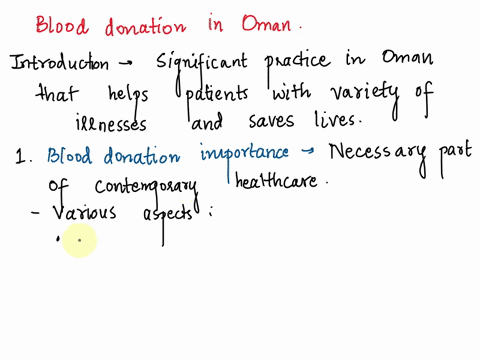 Blood donation in Oman.
Introduction → Significant practice in Oman
that helps patients with variety of
illnesses and saves lives.
1. Blood donation importance → Necessary part
of contemporary healthcare.
- Various aspects :
•